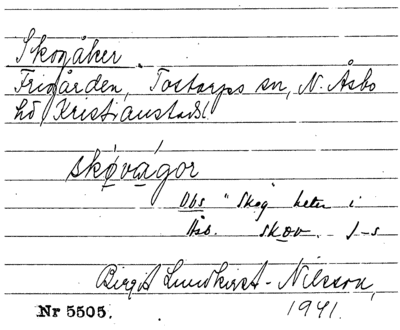 Skogåker
Frigården, Tostarps sn, N. Åsbo
hd Kristianstads l
skǿvágor
Obs "Skog" heter i
skov. J-s
Birgit Lundkvist-Nilsson,
1941.
Nr 5505.